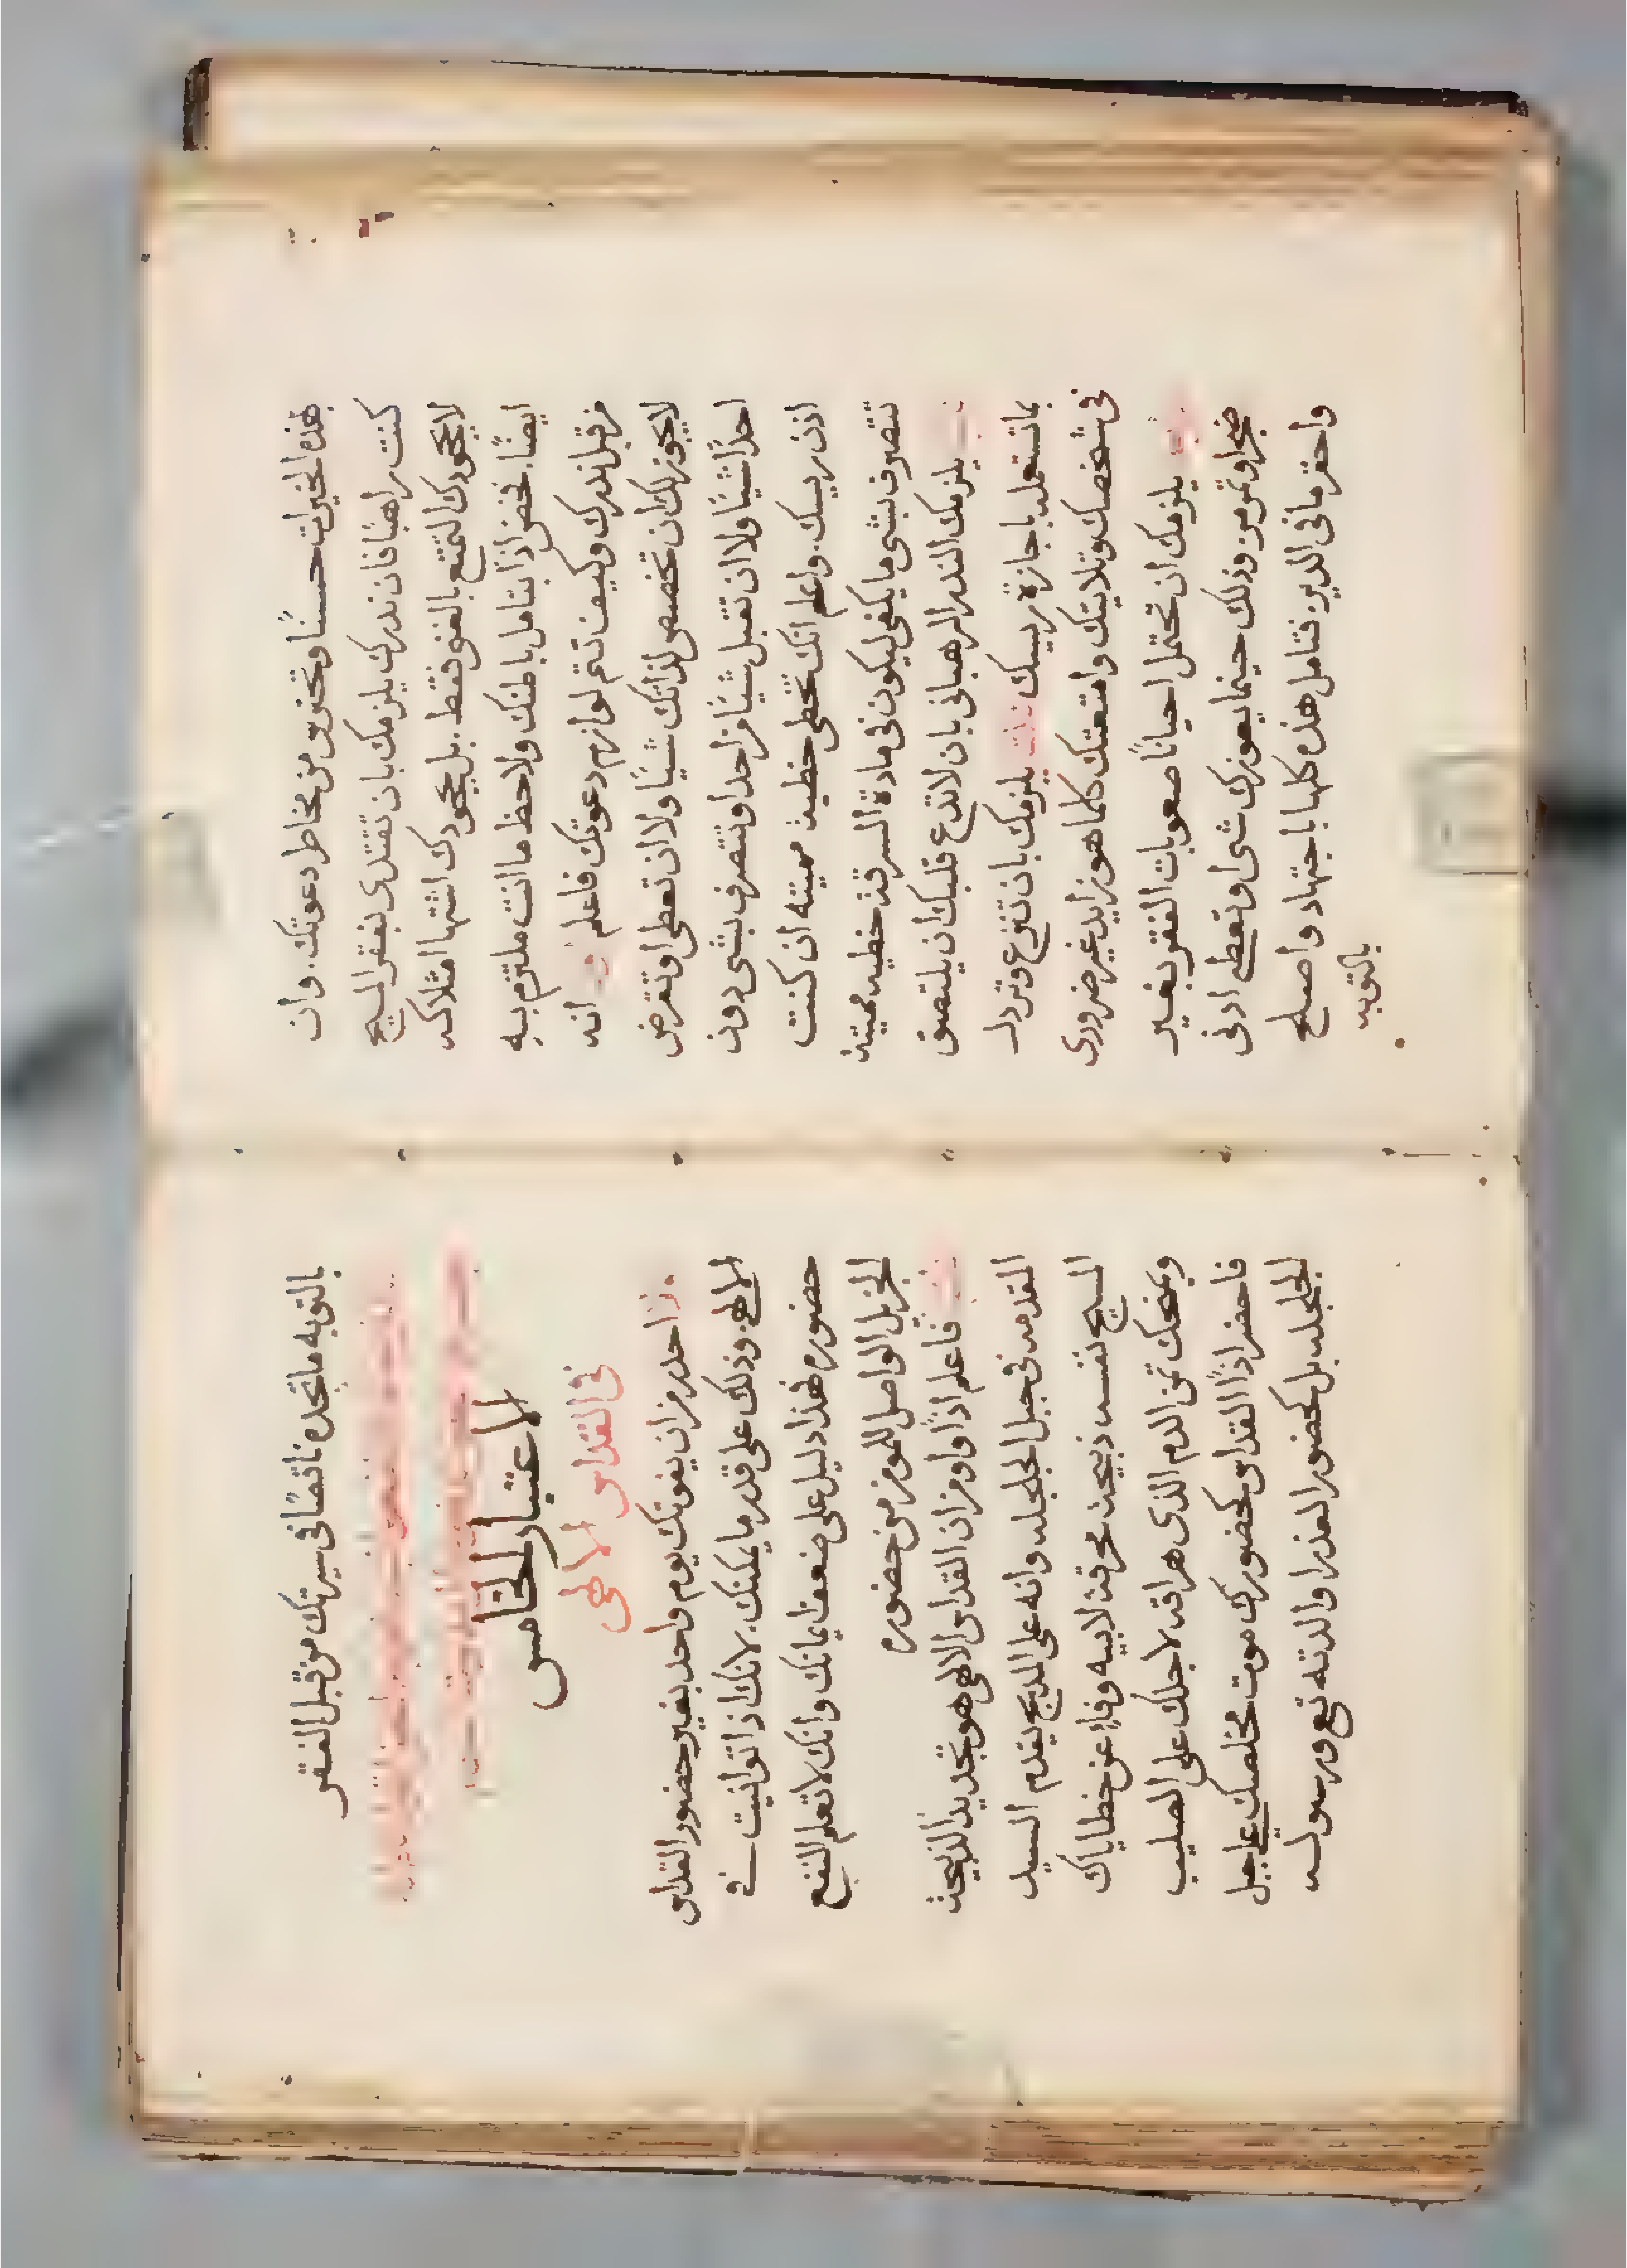 بهذه الخيرات حسنًا وتخرق من مخاطر دعوتك. وان
كنت راهبًا فان ندرك يلزمك بان تقتدى بفقر المسيح
لا يحجودك التمتع بالغنى فقط. بل يحجودك اشتها امثلاكه
ايضًا. فخض اذًا بتامل باطنك ولاحظ ما انت ملتزم بيه
من قبل ندرك وكيف تتم لوازم دعوتك فاعلم انه
لا يجوز لك ان تخصص لذاتك شيًا ولا ان تعطى او تقرض
احدًا شيًا ولا ان تقبل شيًا من احد او تتصرف بشى دون
اذن ريسك. واعلم انك تخطى خطية مميته ان كنت
تتصرف بشى ما يكفى ليكون فى مادة السرقة خطيه مميتة
يلزمك الندر الرهبانى بان لا تدع قلبك ان يلتصق
بما تستعمله باجازة ريسك يلزمك بان تنزع وتردل
فى شخصك وقلايتك وامتعتك كلما هو زايد غير ضرورى
يلزمك ان تحتمل احيانًا صعوبات الفقر بغير
ضجر او تمرمر وذلك حينما يعوزك شى او تعطى ادنى
واحقر ما فى الدير فتامل هذه كلها باجتهاد واصلح
بالتوبه
بالتوبه ما تجده ناقصًا فى سيرتك من قبل الفقر
الاعتبار الخامس
فى القداس الالهى
احدر من ان يفوتك يوم واحد بغير حضور القداس
الالهى. وذلك على قدر ما يمكنك. لانك اذا توانيت فى
حضوره فهذا دليل على ضعف ايمانك وانك لا تعلم النفع
الجزيل الواصل للمومن من حضوره
فاعلم اذًا واومن ان القداس الالهى هو تجديد الذبيحة
المقدمه فى جبل الجلجله وانه على المذبح يقدم السيد
المسيح نفسه ذبيحة محرقة لابيه وفاء عن خطاياك
ويمنحك ثمن الدم الذى هراقه لاجلك على الصليب
فاحضر اذًا القداس كحضورك موت مخلصك على جبل
الجلجله بل كحضور العذرا والدته تع ورسوله